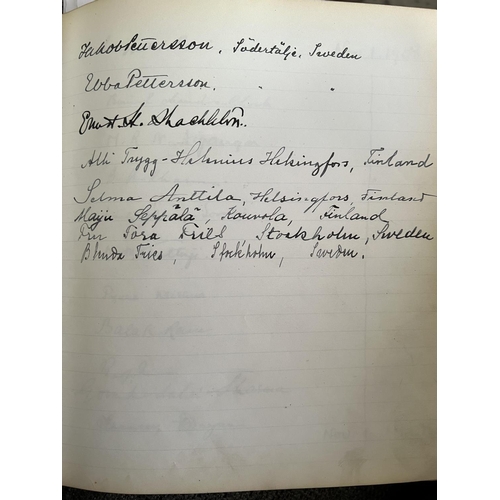 Jakob Pettersson, Södertälje, Sweden
Ebba Pettersson. " "
Ernest H. Shackleton.
Alli Trygg-Helenius Helsingfors, Finland
Selma Anttila, Helsingfors, Finland
Maiju Seppälä, Kouvola, Finland
Tora Fries Stockholm, Sweden
Blenda Fries, Stockholm, Sweden.